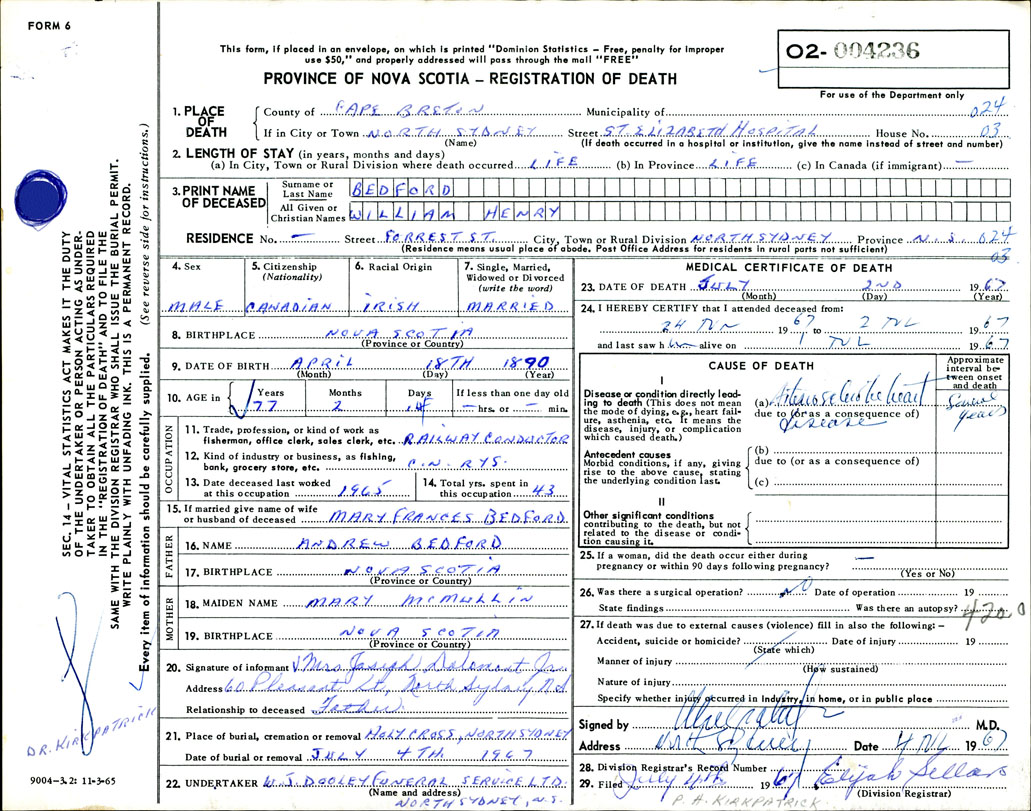 FORM 6
This form, if placed in an envelope, on which is printed "Dominion Statistics – Free, penalty for improper
use $50," and properly addressed will pass through the mail "FREE"
PROVINCE OF NOVA SCOTIA – REGISTRATION OF DEATH
02-004236
For use of the Department only
SEC. 14 – VITAL STATISTICS ACT MAKES IT THE DUTY
OF THE UNDERTAKER OR PERSON ACTING AS UNDER-
TAKER TO OBTAIN ALL THE PARTICULARS REQUIRED
IN THE "REGISTRATION OF DEATH" AND TO FILE THE
SAME WITH THE DIVISION REGISTRAR WHO SHALL ISSUE THE BURIAL PERMIT.
WRITE PLAINLY WITH UNFADING INK. THIS IS A PERMANENT RECORD.
Every item of information should be carefully supplied. (See reverse side for instructions.)
DR. KIRKPATRICK
9004-3.2: 11-3-65
1. PLACE OF DEATH
County of CAPE BRETON Municipality of 024
If in City or Town NORTH SYDNEY Street ST. ELIZABETH HOSPITAL House No. 03
(Name) (If death occurred in a hospital or institution, give the name instead of street and number)
2. LENGTH OF STAY (in years, months and days)
(a) In City, Town or Rural Division where death occurred LIFE (b) In Province LIFE (c) In Canada (if immigrant) —
3. PRINT NAME OF DECEASED
Surname or Last Name BEDFORD
All Given or Christian Names WILLIAM HENRY
RESIDENCE No. — Street FORREST ST. City, Town or Rural Division NORTH SYDNEY Province N.S. 024
(Residence means usual place of abode. Post Office Address for residents in rural parts not sufficient) 03
4. Sex MALE
5. Citizenship (Nationality) CANADIAN
6. Racial Origin IRISH
7. Single, Married, Widowed or Divorced (write the word) MARRIED
8. BIRTHPLACE NOVA SCOTIA
(Province or Country)
9. DATE OF BIRTH APRIL 18TH 1890
(Month) (Day) (Year)
10. AGE in Years Months Days If less than one day old
77 2 14 — hrs. or — min.
OCCUPATION
11. Trade, profession, or kind of work as
fisherman, office clerk, sales clerk, etc. RAILWAY CONDUCTOR
12. Kind of industry or business, as fishing,
bank, grocery store, etc. C.N. RYS.
13. Date deceased last worked
at this occupation 1965
14. Total yrs. spent in
this occupation 43
15. If married give name of wife
or husband of deceased MARY FRANCES BEDFORD
FATHER
16. NAME ANDREW BEDFORD
17. BIRTHPLACE NOVA SCOTIA
(Province or Country)
MOTHER
18. MAIDEN NAME MARY McMULLIN
19. BIRTHPLACE NOVA SCOTIA
(Province or Country)
20. Signature of informant Mrs Joseph Jr.
Address 60 Pleasant St, North Sydney NS
Relationship to deceased Father
21. Place of burial, cremation or removal HOLY CROSS, NORTH SYDNEY
Date of burial or removal JULY 4TH 1967
22. UNDERTAKER W.J. DOOLEY FUNERAL SERVICE LTD.
(Name and address)
NORTH SYDNEY, N.S.
MEDICAL CERTIFICATE OF DEATH
23. DATE OF DEATH JULY 2ND 1967
(Month) (Day) (Year)
24. I HEREBY CERTIFY that I attended deceased from:
24 JUN 1967 to 2 JUL 1967
and last saw him alive on 1 JUL 1967
CAUSE OF DEATH
Approximate interval between onset and death
I
Disease or condition directly lead-
ing to death (This does not mean
the mode of dying, e.g., heart fail-
ure, asthenia, etc. It means the
disease, injury, or complication
which caused death.)
(a) Arteriosclerotic heart
due to (or as a consequence of)
disease
Several years
Antecedent causes
Morbid conditions, if any, giving
rise to the above cause, stating
the underlying condition last.
(b)
due to (or as a consequence of)
(c)
II
Other significant conditions
contributing to the death, but not
related to the disease or condi-
tion causing it.
25. If a woman, did the death occur either during
pregnancy or within 90 days following pregnancy? —
(Yes or No)
26. Was there a surgical operation? NO Date of operation 19
State findings Was there an autopsy? 420 0
27. If death was due to external causes (violence) fill in also the following: –
Accident, suicide or homicide? Date of injury 19
(State which)
Manner of injury
(How sustained)
Nature of injury
Specify whether injury occurred in Industry, in home, or in public place
Signed by M.D.
Address North Sydney Date 4 JUL 1967
28. Division Registrar's Record Number
29. Filed July 4th 1967 Elijah Sellars
(Division Registrar)
P. H. KIRKPATRICK